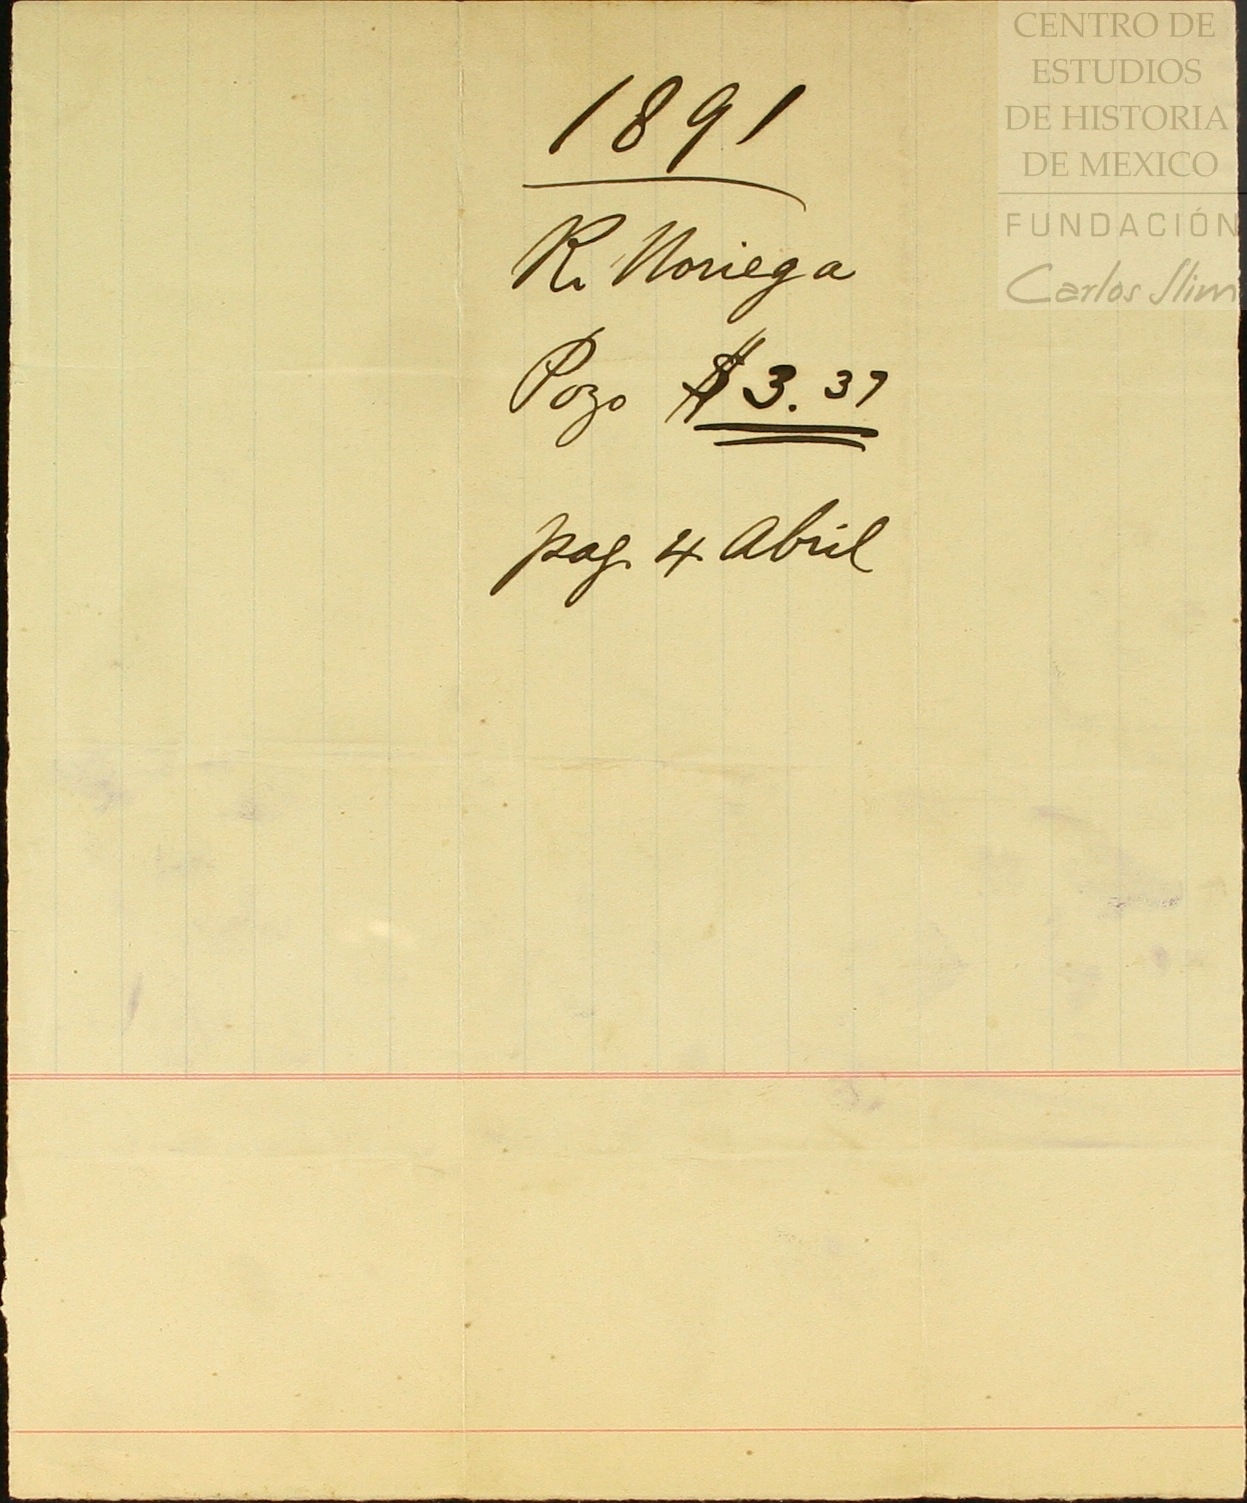 1891
R. Noriega
Pozo $3.37
pag. 4 Abril
CENTRO DE
ESTUDIOS
DE HISTORIA
DE MEXICO
FUNDACIÓN
Carlos Slim